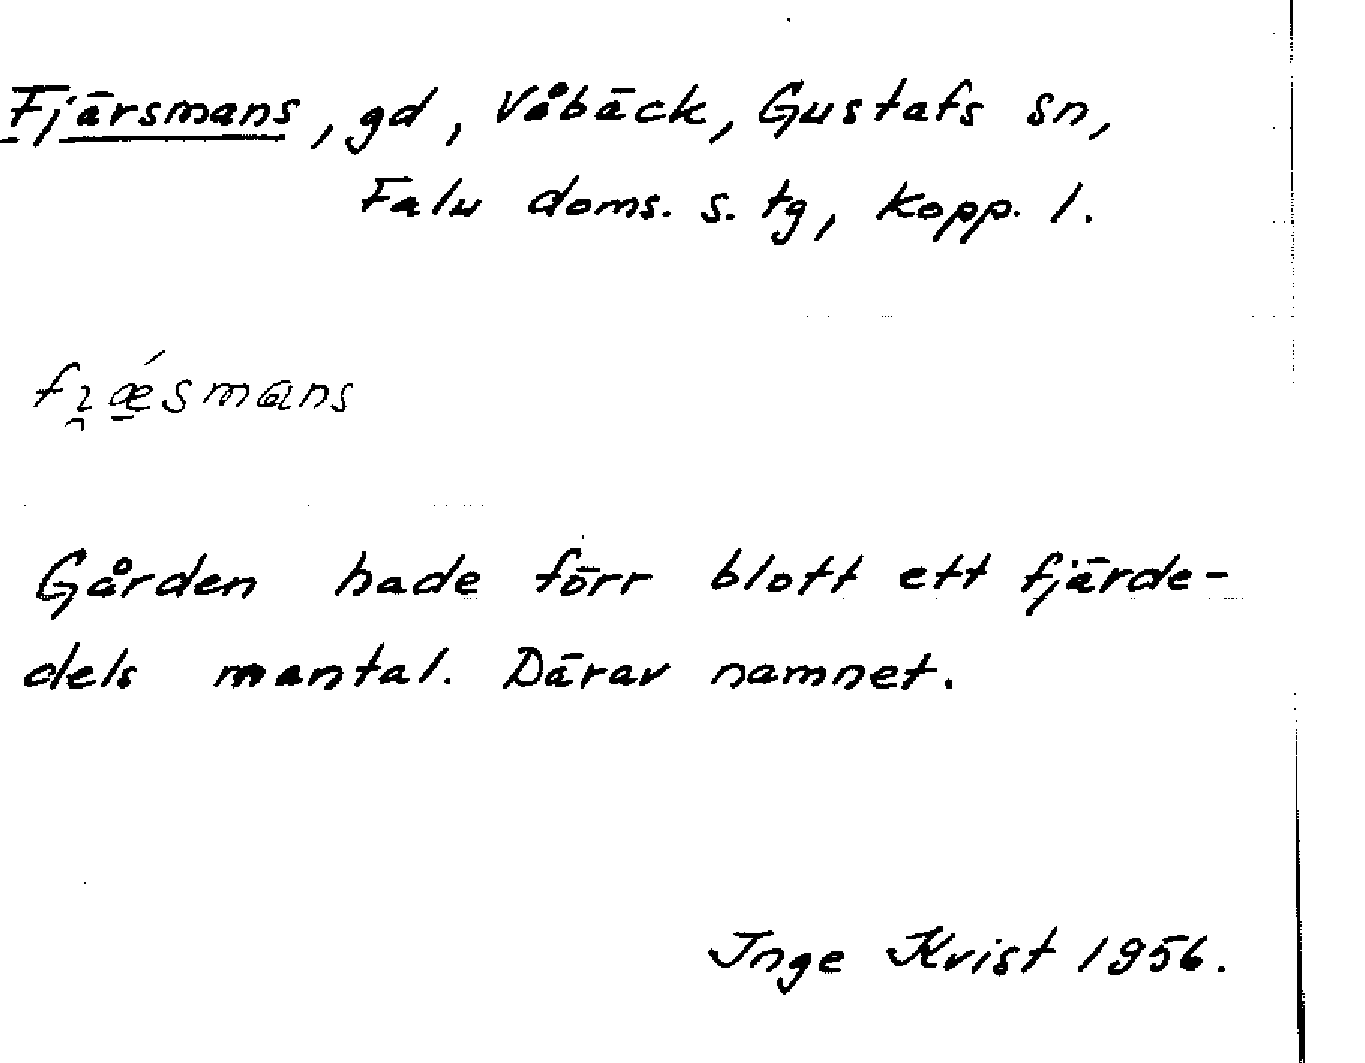 Fjärsmans, gd, Våbäck, Gustafs sn,
Falu doms. s. tg, Kopp. l.
Gården hade förr blott ett fjärde-
dels mantal. Därav namnet.
Inge Kvist 1956.